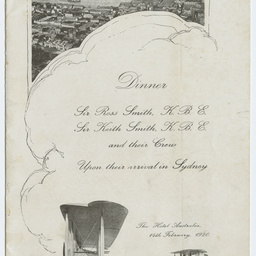 Dinner
Sir Ross Smith, K.B.E.
Sir Keith Smith, K.B.E.
and their Crew
Upon their arrival in Sydney
The Hotel Australia
14th February, 1920.